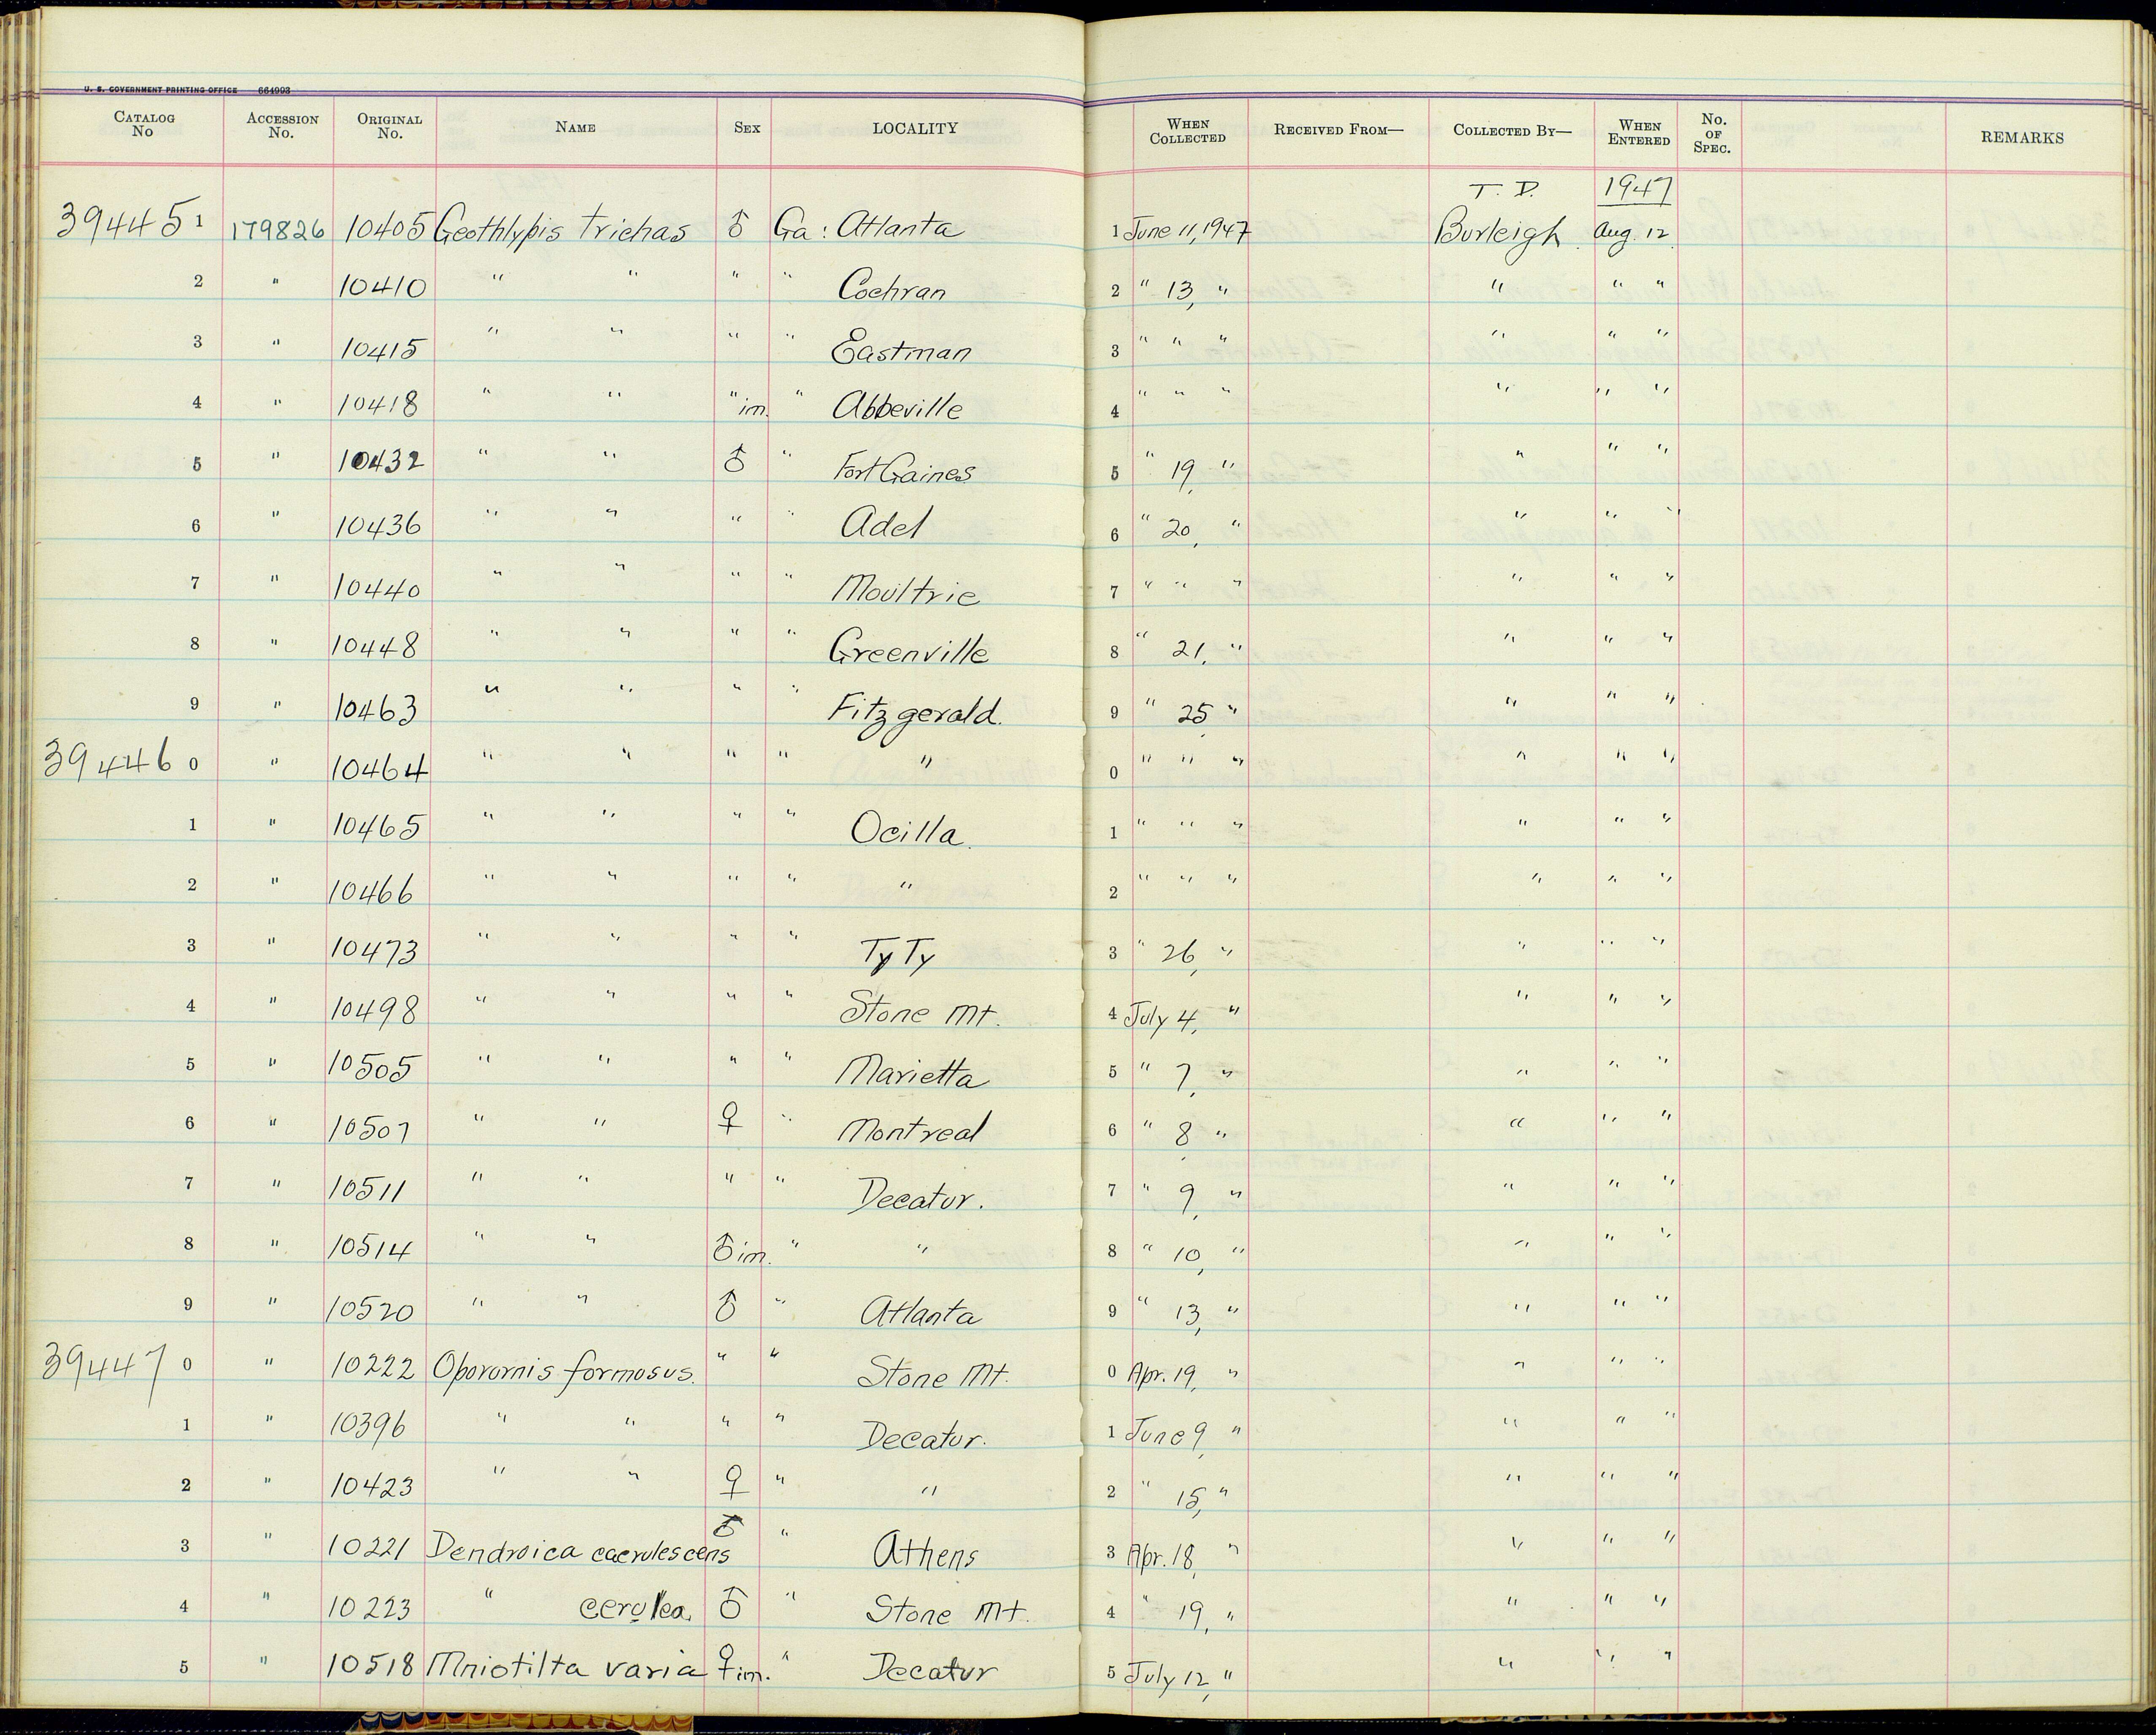 U. S. GOVERNMENT PRINTING OFFICE 664993
CATALOG No ACCESSION No. ORIGINAL No. NAME SEX LOCALITY WHEN COLLECTED RECEIVED FROM— COLLECTED BY— WHEN ENTERED No. OF SPEC. REMARKS
T. D. 1947
394451 179826 10405 Geothlypis trichas ♂ Ga: Atlanta 1 June 11, 1947 Burleigh Aug. 12
2 " 10410 " " " " Cochran 2 " 13, " " " "
3 " 10415 " " " " Eastman 3 " " " " " "
4 " 10418 " " " im. " Abbeville 4 " " " " " "
5 " 10432 " " ♂ " Fort Gaines 5 " 19, " " " "
6 " 10436 " " " " Adel 6 " 20, " " " "
7 " 10440 " " " " Moultrie 7 " " " " " "
8 " 10448 " " " " Greenville 8 " 21, " " " "
9 " 10463 " " " " Fitzgerald. 9 " 25, " " " "
394460 " 10464 " " " " " 0 " " " " " "
1 " 10465 " " " " Ocilla. 1 " " " " " "
2 " 10466 " " " " " 2 " " " " " "
3 " 10473 " " " " Ty Ty 3 " 26, " " " "
4 " 10498 " " " " Stone Mt. 4 July 4, " " " "
5 " 10505 " " " " Marietta 5 " 7, " " " "
6 " 10507 " " ♀ " Montreal 6 " 8, " " " "
7 " 10511 " " " " Decatur. 7 " 9, " " " "
8 " 10514 " " ♂ im. " " 8 " 10, " " " "
9 " 10520 " " ♂ " Atlanta 9 " 13, " " " "
394470 " 10222 Oporornis formosus. " " Stone Mt. 0 Apr. 19, " " " "
1 " 10396 " " " " Decatur. 1 June 9, " " " "
2 " 10423 " " ♀ " " 2 " 15, " " " "
3 " 10221 Dendroica caerulescens ♂ " Athens 3 Apr. 18, " " " "
4 " 10223 " cerulea. ♂ " Stone Mt. 4 " 19, " " " "
5 " 10518 Mniotilta varia ♀ im. " Decatur 5 July 12, " " " "